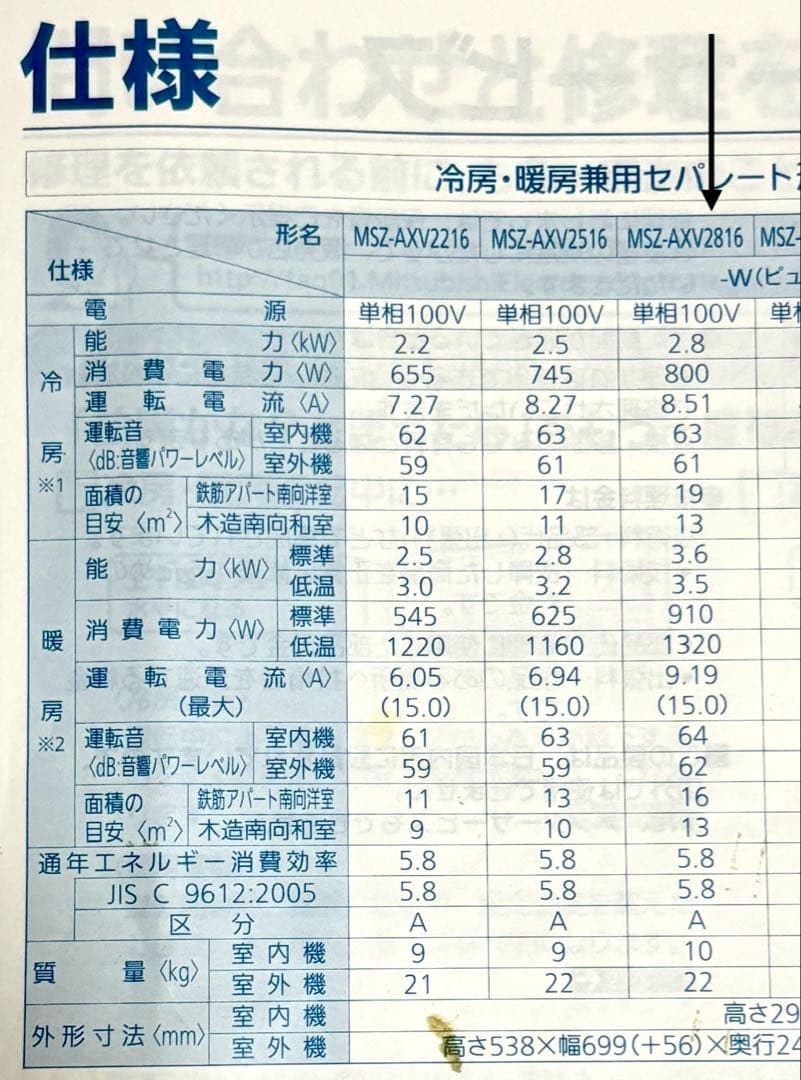 仕様
冷房・暖房兼用セパレート
形名 MSZ-AXV2216 MSZ-AXV2516 MSZ-AXV2816 MSZ-
仕様 -W(ピュ
電源 単相100V 単相100V 単相100V 単相
冷房※1
能力〈kW〉 2.2 2.5 2.8
消費電力〈W〉 655 745 800
運転電流〈A〉 7.27 8.27 8.51
運転音 室内機 62 63 63
〈dB:音響パワーレベル〉 室外機 59 61 61
面積の 鉄筋アパート南向洋室 15 17 19
目安〈m²〉 木造南向和室 10 11 13
暖房※2
能力〈kW〉 標準 2.5 2.8 3.6
低温 3.0 3.2 3.5
消費電力〈W〉 標準 545 625 910
低温 1220 1160 1320
運転電流〈A〉 6.05 6.94 9.19
(最大) (15.0) (15.0) (15.0)
運転音 室内機 61 63 64
〈dB:音響パワーレベル〉 室外機 59 59 62
面積の 鉄筋アパート南向洋室 11 13 16
目安〈m²〉 木造南向和室 9 10 13
通年エネルギー消費効率 5.8 5.8 5.8
JIS C 9612:2005 5.8 5.8 5.8
区分 A A A
質量〈kg〉 室内機 9 9 10
室外機 21 22 22
外形寸法〈mm〉 室内機 高さ29
室外機 高さ538×幅699(+56)×奥行24